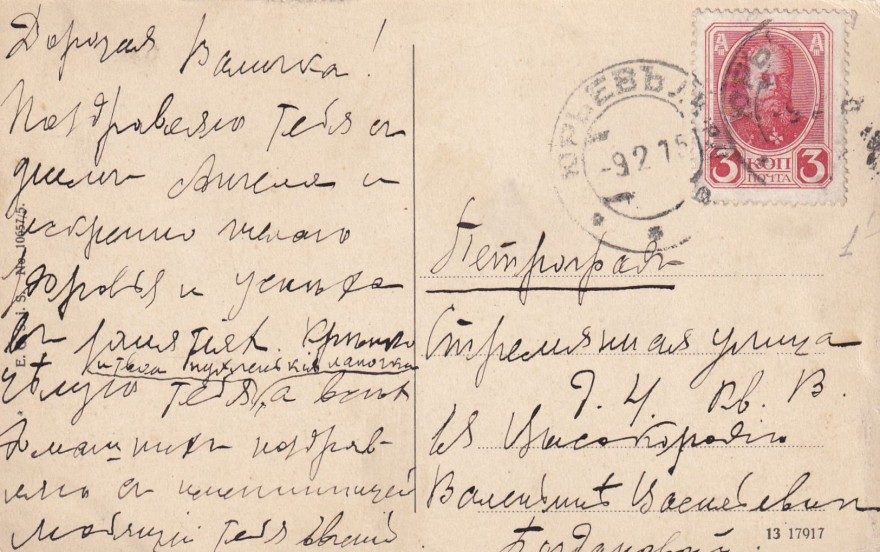 Дорогая Валичка!
Поздравляю тебя съ
днемъ Ангела и
искренно желаю
здоровья и успѣха
въ занятіяхъ. Крѣпко
и твои пухленькія лапочки
цѣлую тебя, а всѣхъ
домашнихъ поздрав-
ляю съ именинницей
Любящій тебя
E. S. i. S. No. 10657/5.
ЮРЬЕВЪ
-9 2 15
А А
3 КОП 3
ПОЧТА
1
Петроградъ
Стремянная улица
Д. 4. Кв. 8.
Ея Высокородію
Валентинѣ Васильевнѣ
Богдановой
13 17917